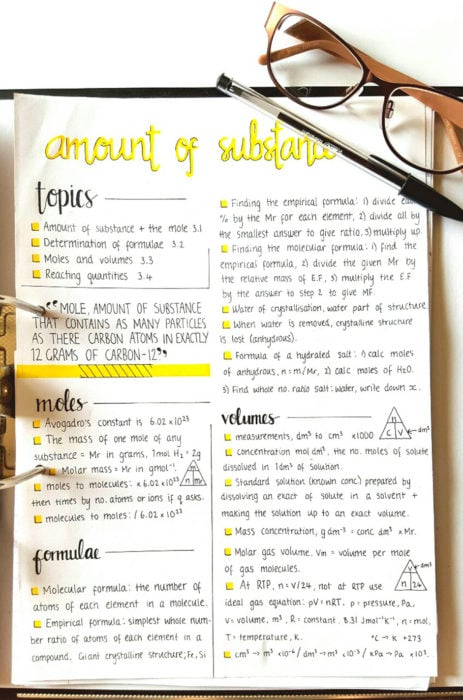 amount of substance
topics
Amount of substance + the mole 3.1
Determination of formulae 3.2
Moles and volumes 3.3
Reacting quantities 3.4
"MOLE, AMOUNT OF SUBSTANCE
THAT CONTAINS AS MANY PARTICLES
AS THERE CARBON ATOMS IN EXACTLY
12 GRAMS OF CARBON-12"
moles
Avogadro's constant is 6.02 x10²³
The mass of one mole of any
substance = Mr in grams, 1mol H₂ = 2g
Molar mass = Mr in gmol⁻¹.
moles to molecules: x 6.02 x10²³
m
n Mr
then times by no. atoms or ions if q asks.
molecules to moles: / 6.02 x10²³
formulae
Molecular formula: the number of
atoms of each element in a molecule.
Empirical formula: simplest whole num-
ber ratio of atoms of each element in a
compound. Giant crystalline structure; Fe, Si
Finding the empirical formula: 1) divide each
% by the Mr for each element, 2) divide all by
the smallest answer to give ratio, 3) multiply up.
Finding the molecular formula: 1) find the
empirical formula, 2) divide the given Mr by
the relative mass of E.F, 3) multiply the E.F
by the answer to step 2 to give MF.
Water of crystallisation, water part of structure
When water is removed, crystalline structure
is lost (anhydrous).
Formula of a hydrated salt: 1) calc moles
of anhydrous, n = m/Mr, 2) calc moles of H₂O.
3) Find whole no. ratio salt: water, write down x.
volumes
n
C V dm³
measurements, dm³ to cm³ x1000
concentration mol dm⁻³, the no. moles of solute
dissolved in 1dm³ of solution.
Standard solution (known conc) prepared by
dissolving an exact of solute in a solvent +
making the solution up to an exact volume.
Mass concentration, g dm⁻³ = conc dm³ x Mr.
Molar gas volume, Vm = volume per mole
of gas molecules.
V dm³
n 24
At RTP, n = v/24, not at RTP use
ideal gas equation: pV = nRT. p = pressure, Pa,
V = volume, m³, R = constant, 8.31 Jmol⁻¹K⁻¹, n = mol,
T = temperature, K. °C → K +273
cm³ → m³ x10⁻⁶ / dm³ → m³ x10⁻³ / kPa → Pa x10³.